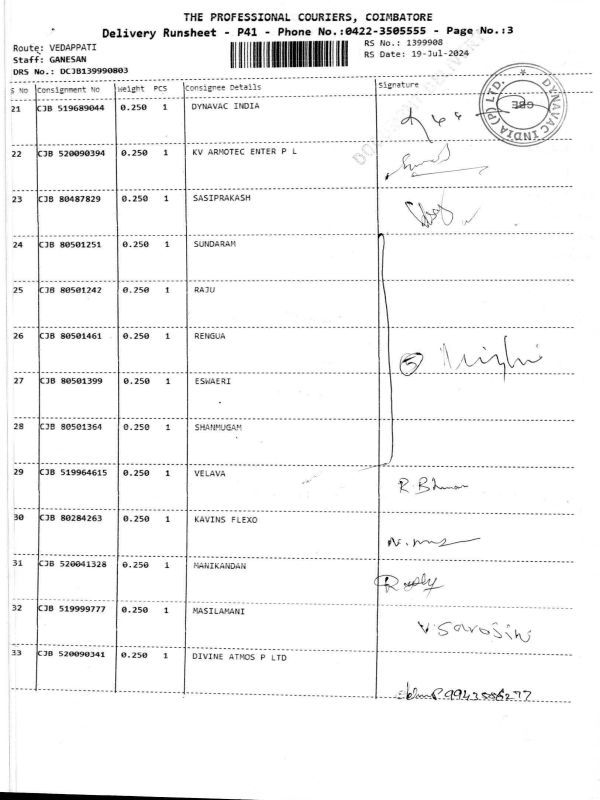 THE PROFESSIONAL COURIERS, COIMBATORE
Delivery Runsheet - P41 - Phone No.:0422-3505555 - Page No.:3
Route: VEDAPPATI
RS No.: 1399908
Staff: GANESAN
RS Date: 19-Jul-2024
DRS No.: DCJB139990803
S No Consignment No Weight PCS Consignee Details Signature
21 CJB 519689044 0.250 1 DYNAVAC INDIA
DYNAVAC INDIA (P) LTD. CBE
22 CJB 520090394 0.250 1 KV ARMOTEC ENTER P L
23 CJB 80487829 0.250 1 SASIPRAKASH
24 CJB 80501251 0.250 1 SUNDARAM
25 CJB 80501242 0.250 1 RAJU
26 CJB 80501461 0.250 1 RENGUA
5
27 CJB 80501399 0.250 1 ESWAERI
28 CJB 80501364 0.250 1 SHANMUGAM
29 CJB 519964615 0.250 1 VELAVA
30 CJB 80284263 0.250 1 KAVINS FLEXO
31 CJB 520041328 0.250 1 MANIKANDAN
32 CJB 519999777 0.250 1 MASILAMANI
V. Sarojini
33 CJB 520090341 0.250 1 DIVINE ATMOS P LTD